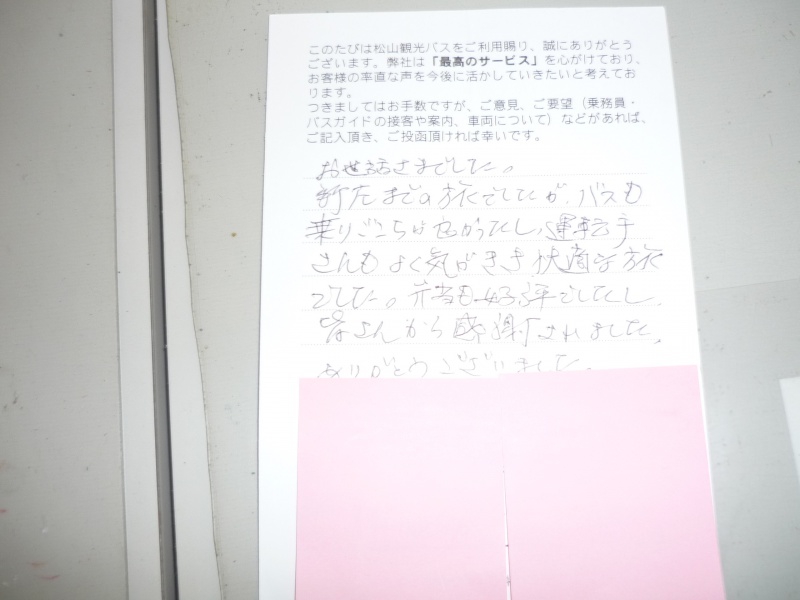 このたびは松山観光バスをご利用賜り、誠にありがとう
ございます。弊社は「最高のサービス」を心がけており、
お客様の率直な声を今後に活かしていきたいと考えてお
ります。
つきましてはお手数ですが、ご意見、ご要望（乗務員・
バスガイドの接客や案内、車両について）などがあれば、
ご記入頂き、ご投函頂ければ幸いです。
お世話さまでした。
までの旅でしたが、バスも
乗りごこちが良かったし、運転手
さんもよく気がきき、快適な旅
でした。弁当も好評でしたし、
皆さんから感謝されました。
ありがとうございました。